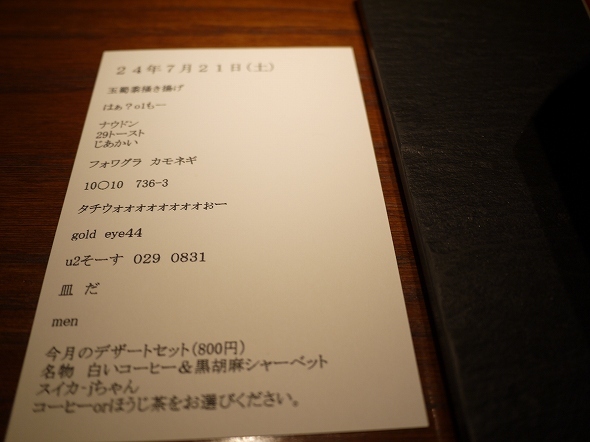 ２４年７月２１日（土）
玉蜀黍掻き揚げ
はぁ？olもー
ナウドン
29トースト
じあかい
フォワグラ カモネギ
10〇10 736-3
タチウォォォォォォォォぉー
gold eye44
u2そーす 029 0831
皿 だ
men
今月のデザートセット（800円）
名物 白いコーヒー＆黒胡麻シャーベット
スイカ-jちゃん
コーヒーorほうじ茶をお選びください。